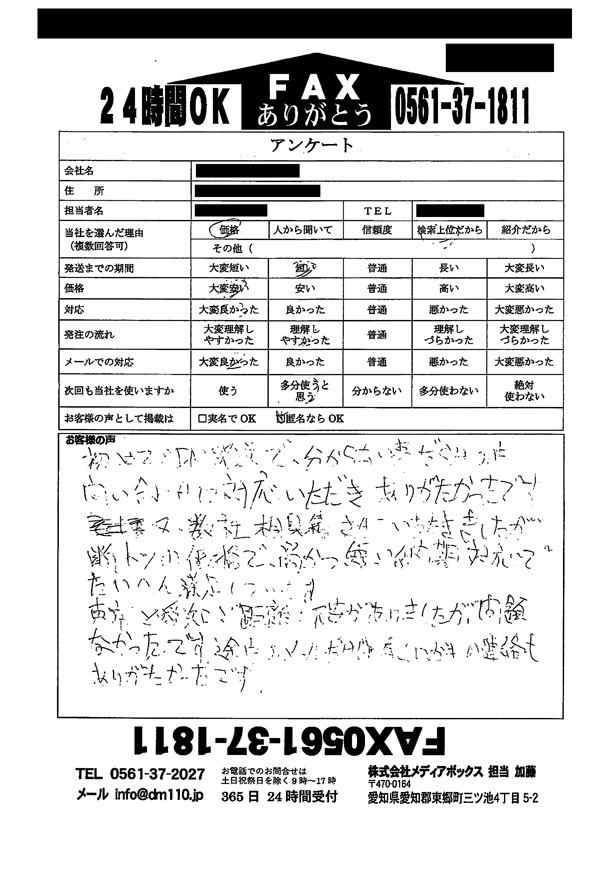 FAX
24時間OK ありがとう 0561-37-1811
アンケート
会社名
住 所
担当者名 TEL
当社を選んだ理由 (複数回答可) 価格 人から聞いて 信頼度 検索上位だから 紹介だから
その他 ( )
発送までの期間 大変短い 短い 普通 長い 大変長い
価格 大変安い 安い 普通 高い 大変高い
対応 大変良かった 良かった 普通 悪かった 大変悪かった
発注の流れ 大変理解しやすかった 理解しやすかった 普通 理解しづらかった 大変理解しづらかった
メールでの対応 大変良かった 良かった 普通 悪かった 大変悪かった
次回も当社を使いますか 使う 多分使うと思う 分からない 多分使わない 絶対使わない
お客様の声として掲載は □実名でOK □匿名ならOK
お客様の声
初めての DM発送で、分からない
問い合わせに対応いただき ありがたかったです!
又、数社 相見積 きましたが
断トツの価格で、 短い 対応いて
たいへん満足
と愛知で距離 がありましたが問題
なかったです 連絡も
ありがたかったです
FAX0561-37-1811
TEL 0561-37-2027
メール info@dm110.jp
お電話でのお問合せは
土日祝祭日を除く9時〜17時
365日 24時間受付
株式会社メディアボックス 担当 加藤
〒470-0164
愛知県愛知郡東郷町三ツ池4丁目5-2